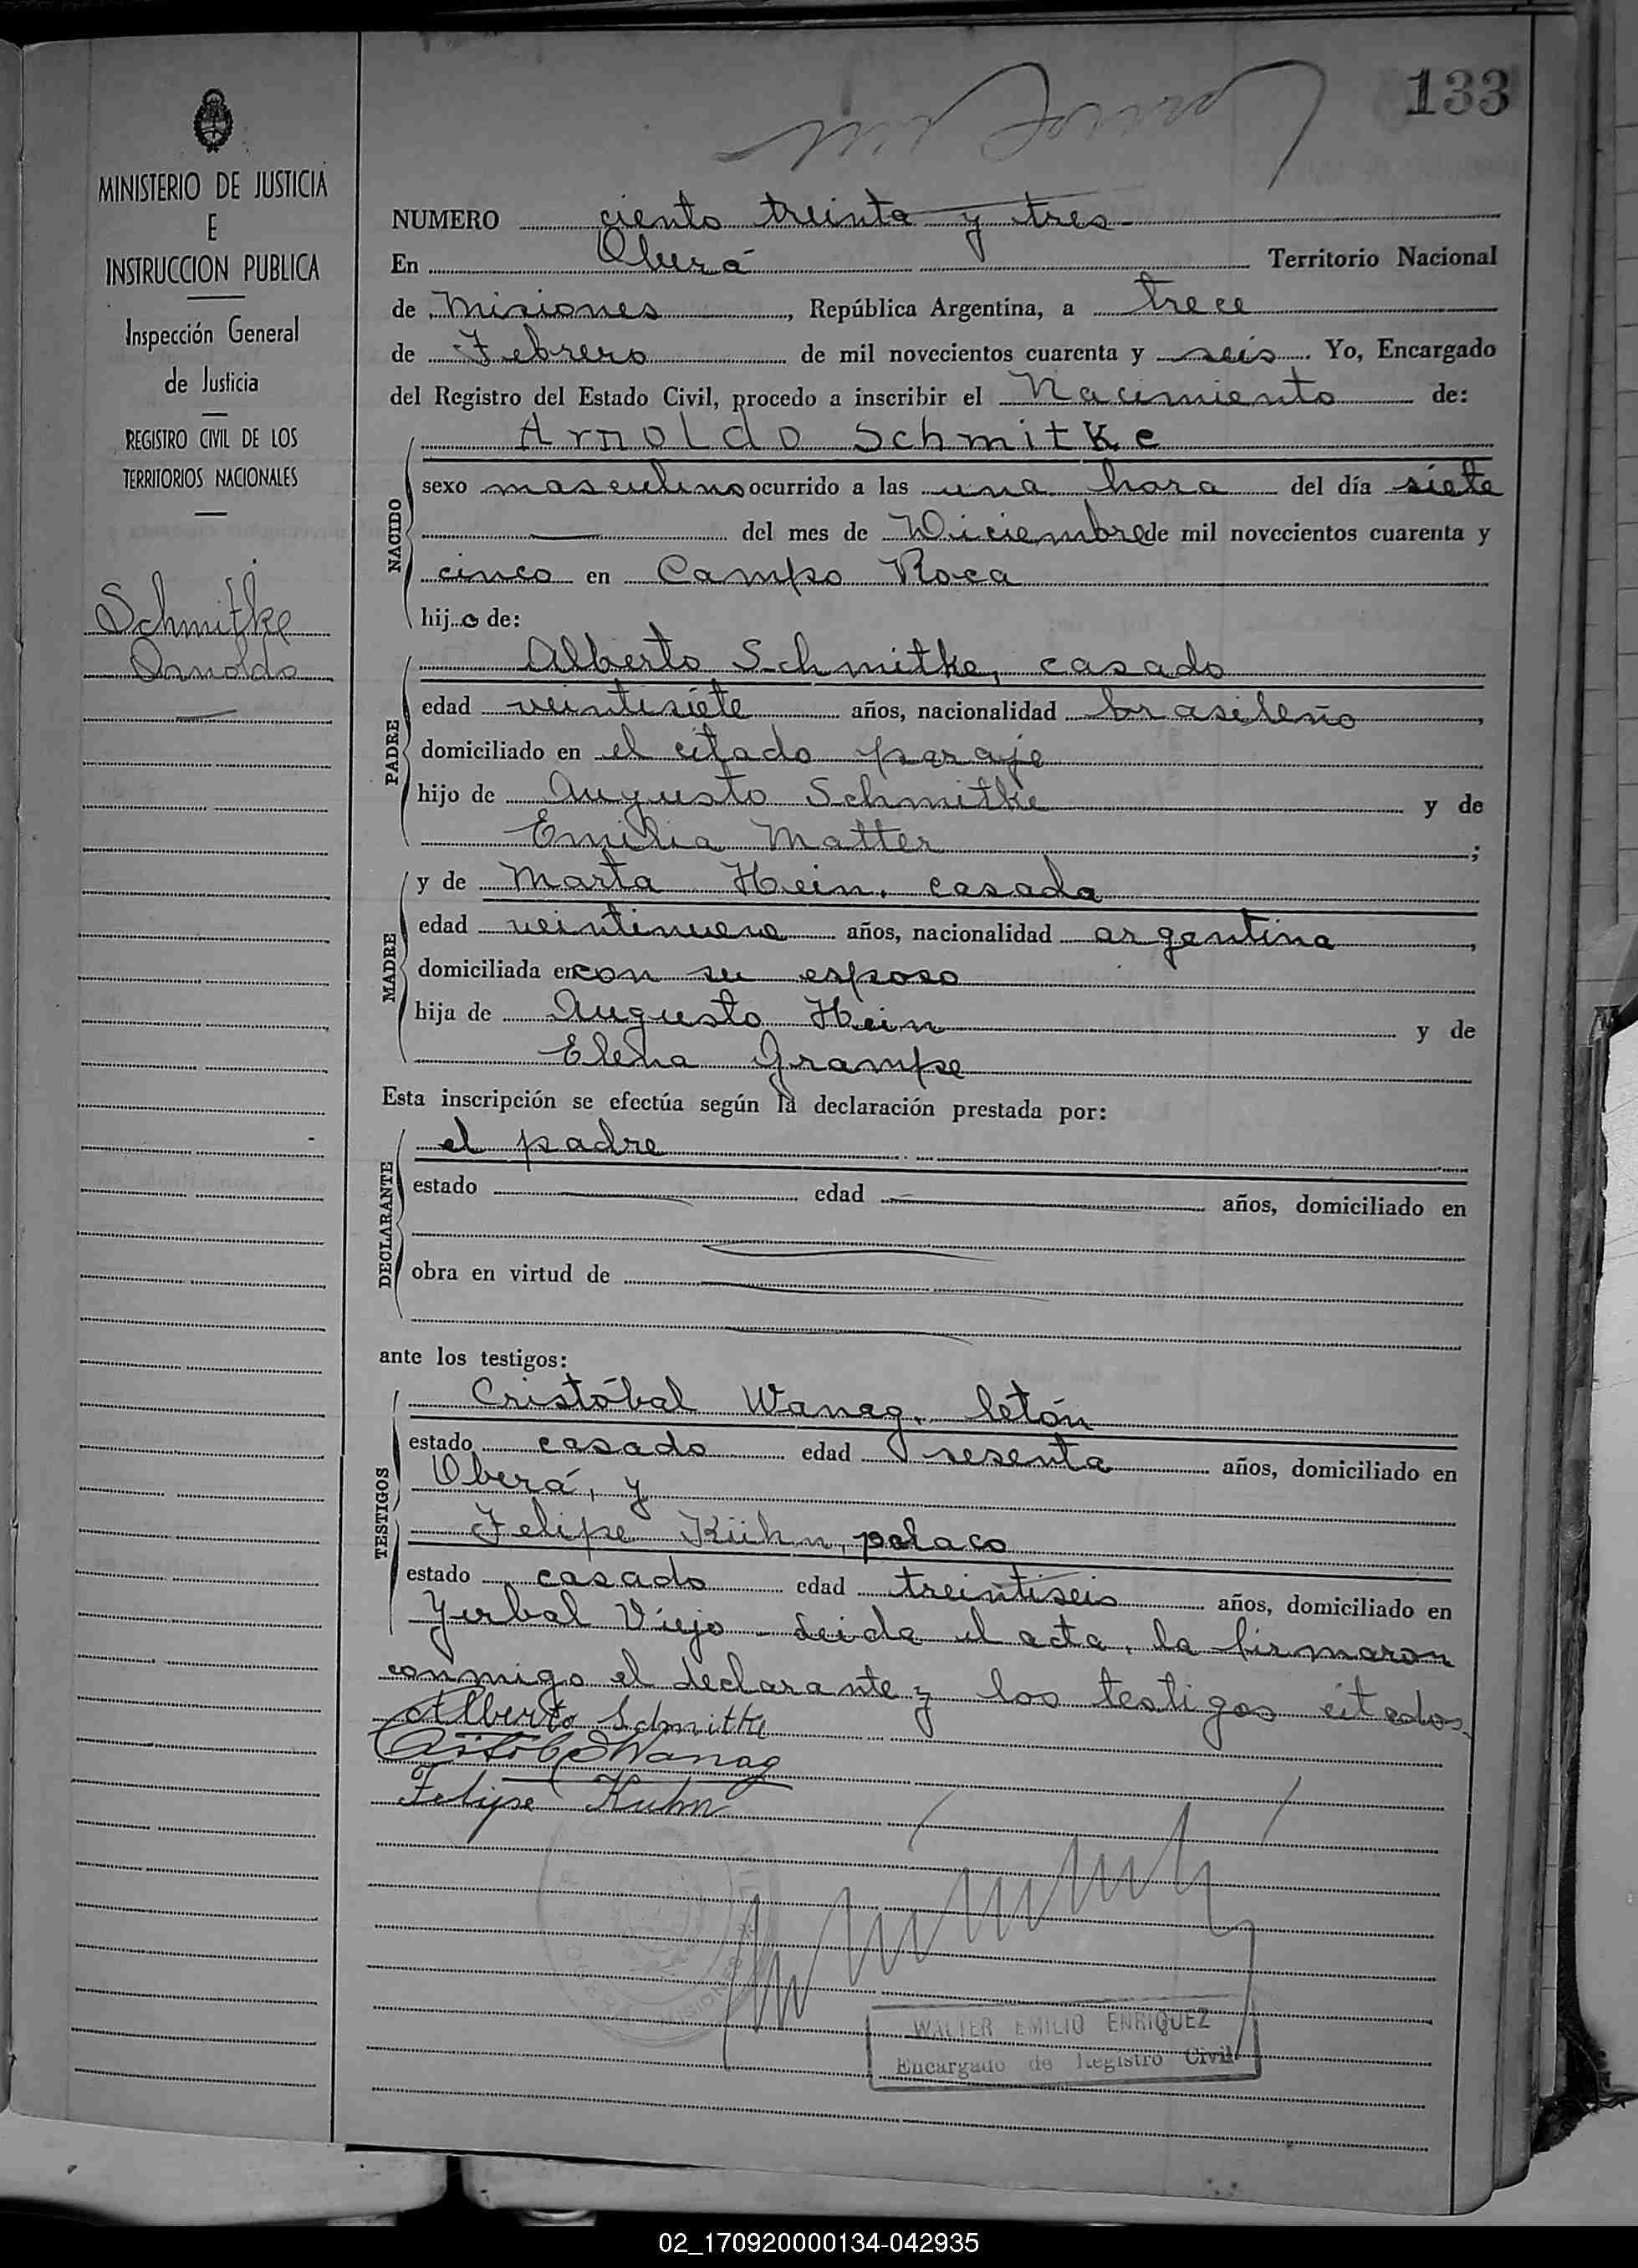 133
MINISTERIO DE JUSTICIA
E
INSTRUCCION PUBLICA
Inspección General
de Justicia
REGISTRO CIVIL DE LOS
TERRITORIOS NACIONALES
Schmitke
Arnoldo
NUMERO ciento treinta y tres
En Oberá Territorio Nacional
de Misiones, República Argentina, a trece
de Febrero de mil novecientos cuarenta y seis. Yo, Encargado
del Registro del Estado Civil, procedo a inscribir el Nacimiento de:
NACIDO
Arnoldo Schmitke
sexo masculino ocurrido a las una hora del día siete
del mes de Diciembre de mil novecientos cuarenta y
cinco en Campo Roca
hijo de:
PADRE
Alberto Schmitke, casado
edad veintisiete años, nacionalidad brasileño,
domiciliado en el citado paraje
hijo de Augusto Schmitke y de
Emilia Matter;
MADRE
y de Marta Hein, casada
edad veintinueve años, nacionalidad argentina,
domiciliada en con su esposo
hija de Augusto Hein y de
Elena Grampe
Esta inscripción se efectúa según la declaración prestada por:
DECLARANTE
el padre
estado edad años, domiciliado en
obra en virtud de
ante los testigos:
TESTIGOS
Cristóbal Wanag, letón
estado casado edad sesenta años, domiciliado en
Oberá, y
Felipe Kühn, polaco
estado casado edad treintiseis años, domiciliado en
Yerbal Viejo - Leida el acta, la firmaron
conmigo el declarante y los testigos citados.
Alberto Schmitke
Cristobal Wanag
Felipe Kuhn
WALTER EMILIO ENRIQUEZ
Encargado de Registro Civil
02_170920000134-042935